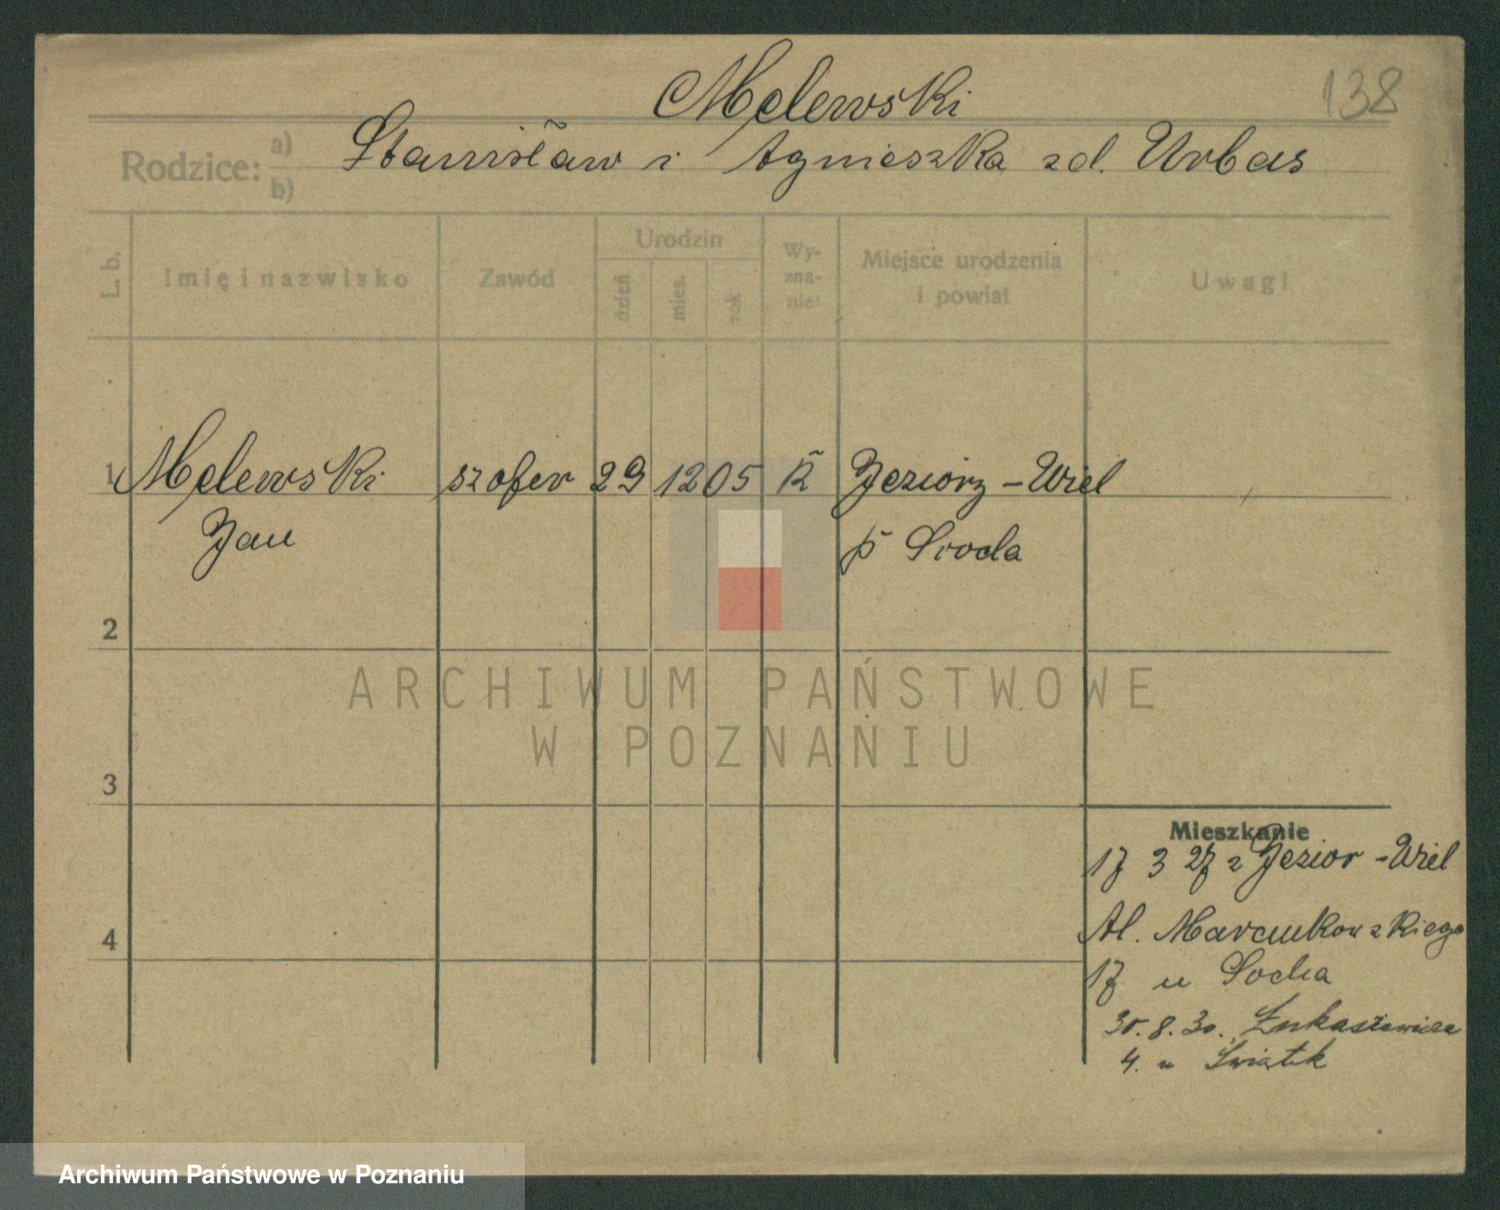 138
Melewski
Rodzice: a) b)
Stanisław i Agnieszka zd. Urbas
L. b.
Imię i nazwisko
Zawód
Urodzin
dzień
mies.
rok
Wy-
zna-
nie
Miejsce urodzenia
i powiat
Uwagi
1 Melewski szofer 29 12 05 K Jeziorz - Wiel
Jan p Sroda
2
ARCHIWUM PAŃSTWOWE
W POZNANIU
3
Mieszkanie
17 3 27 z Jezior - Wiel
Al. Marcinkowskiego
4
17 u Socha
30.8.30. Łukaszewicza
4. u Świątek
Archiwum Państwowe w Poznaniu